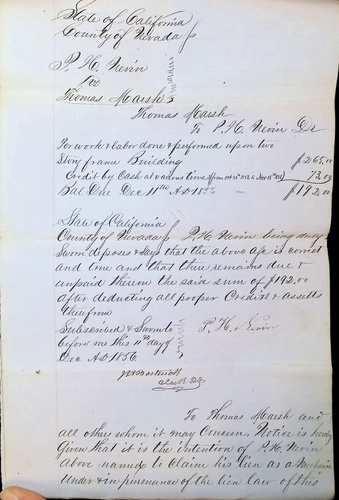 State of California
County of Nevada
P. H. Nevin
Thomas Marsh
Thomas Marsh
To P. H. Nevin Dr
For work & labor done & performed upon two
Story frame Building $265.00
Credit by Cash at various times 73.00
Bal Due Dec 11th AD 1856 $192.00
State of California
County of Nevada P. H. Nevin being duly
Sworn deposes & says that the above a/c is correct
and true and that there remains due &
unpaid thereon the said sum of $192.00
after deducting all proper Credits &
therefrom
Subscribed & Sworn to P. H. Nevin
before me this 11th day of
Dec AD 1856
To Thomas Marsh and
all others whom it may Concern. Notice is hereby
Given That it is the intention of P. H. Nevin
above named to Claim his lien as a Mechanic
Under & in pursuance of the lien law of this